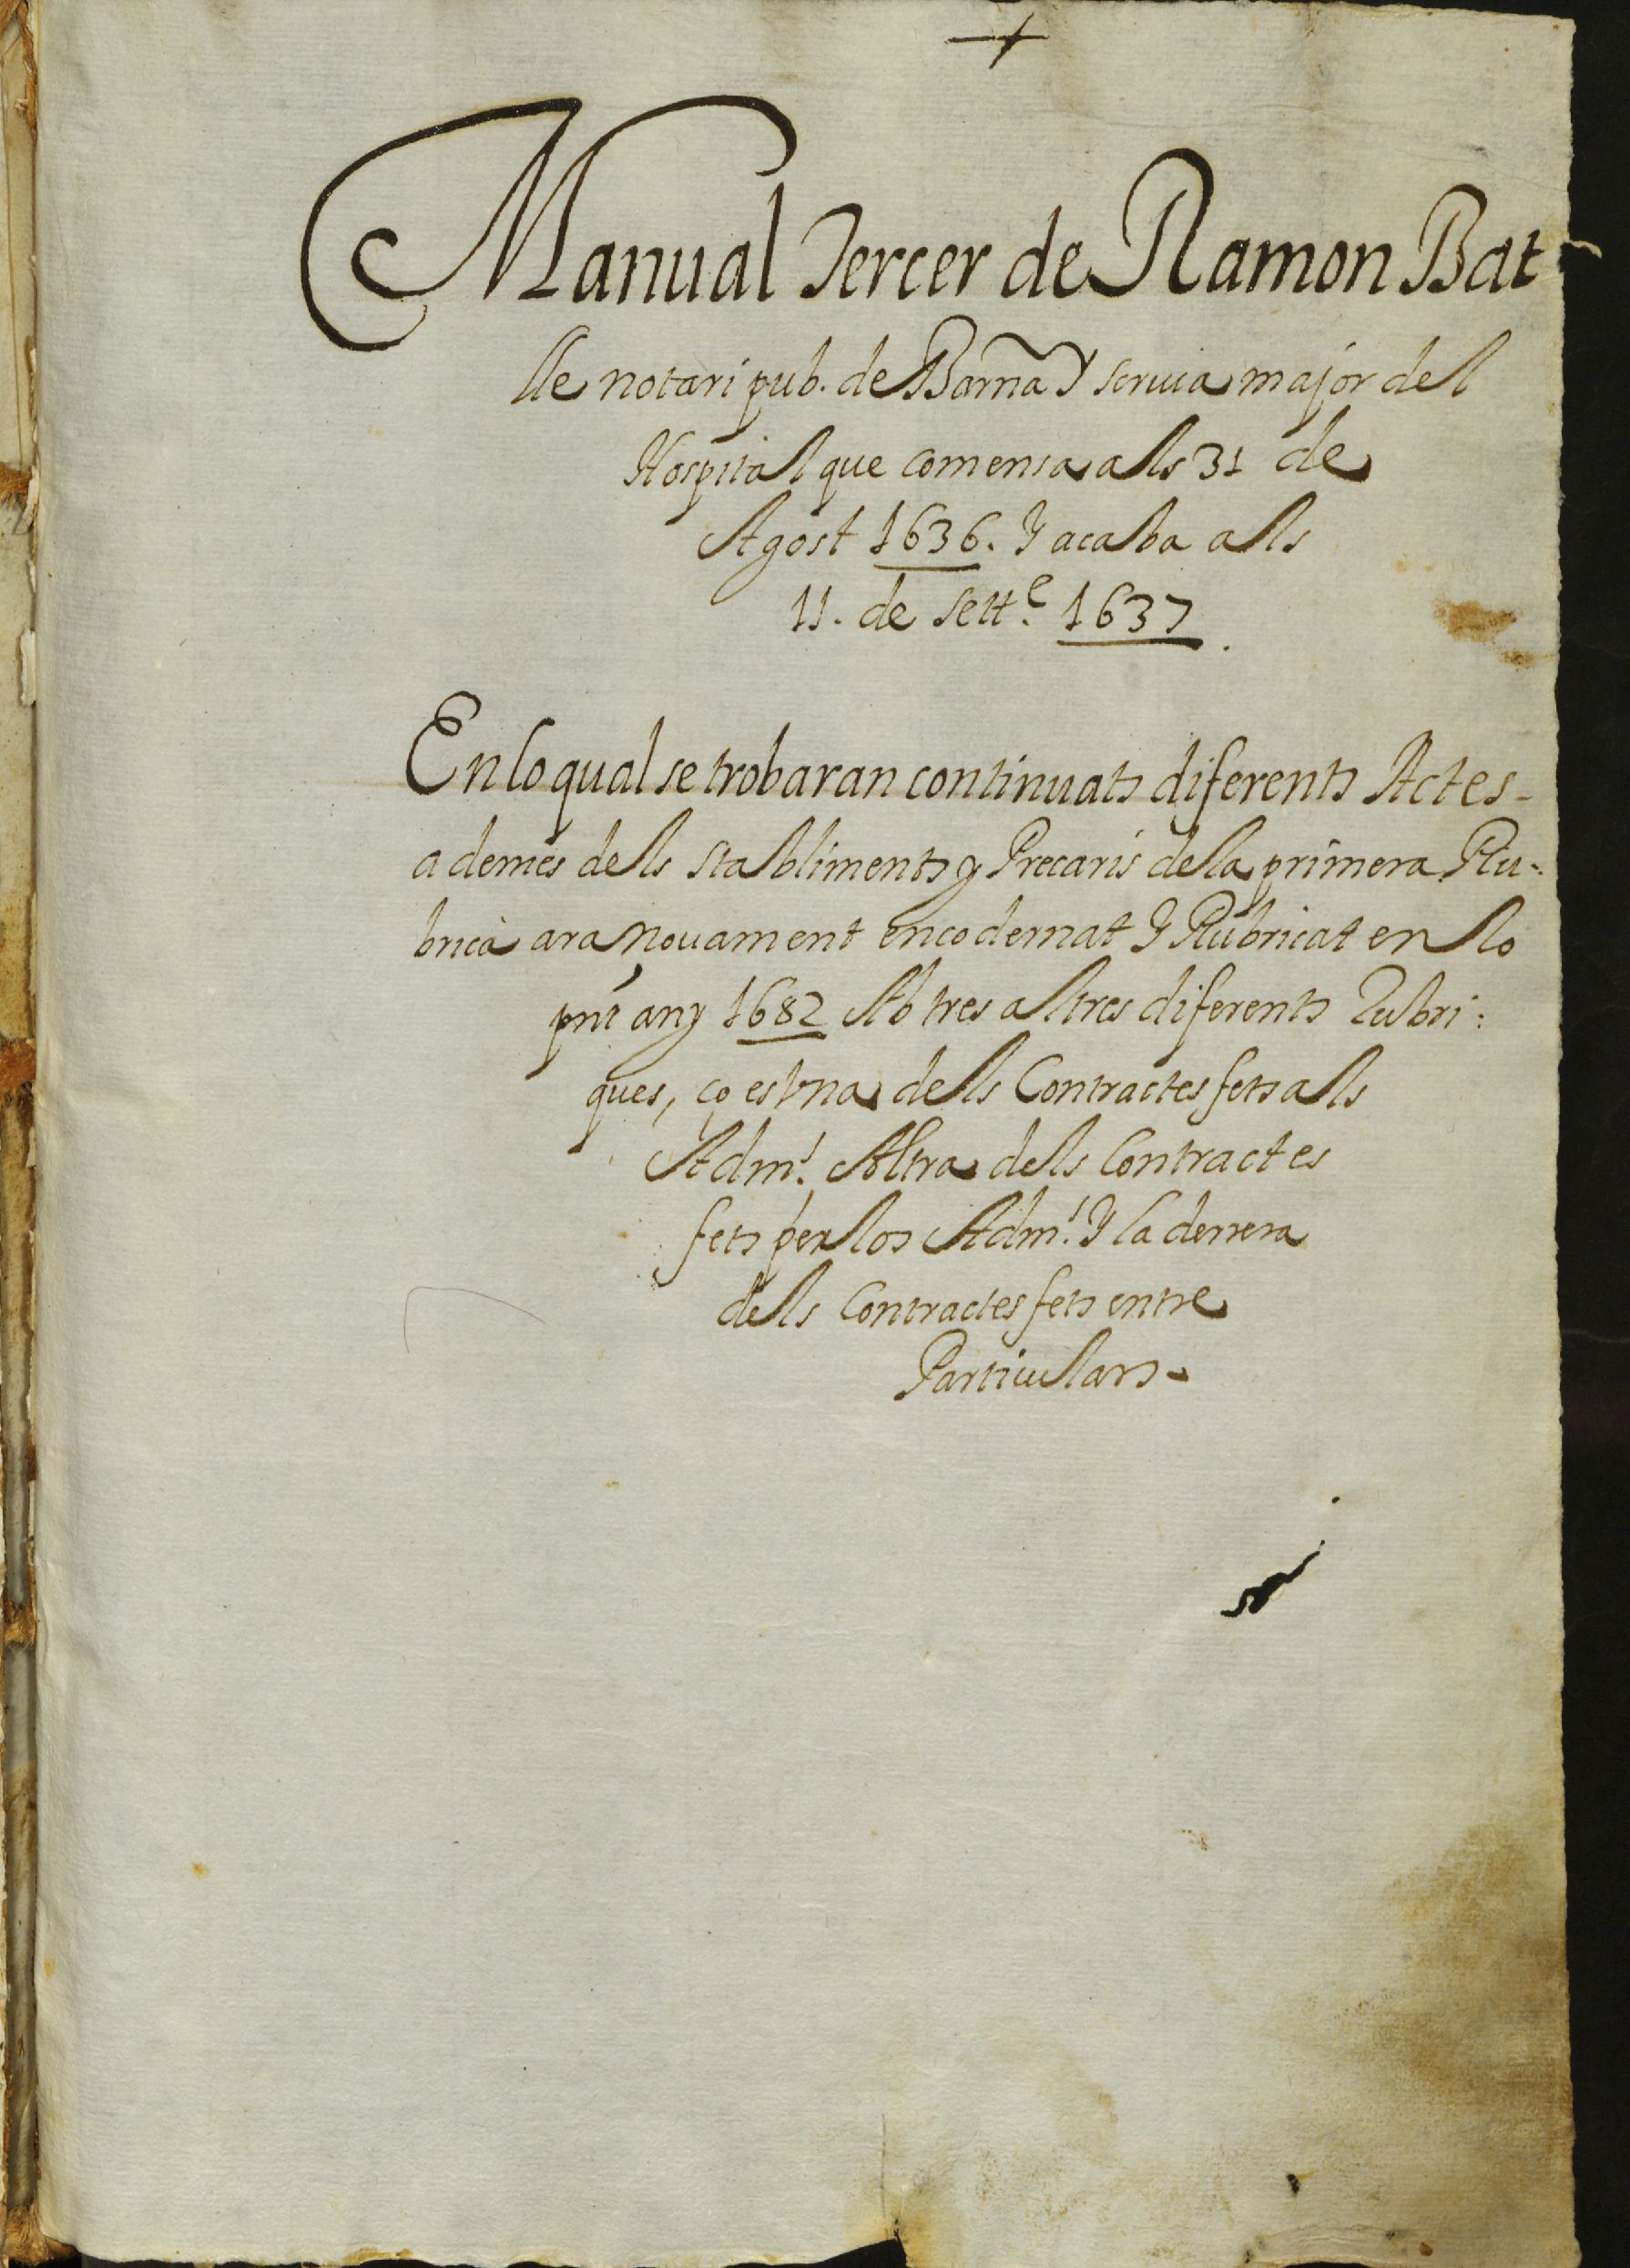 Manual Tercer de Ramon Bat
lle notari pub. de Barña Y scriuá major del
Hospital que comensa als 31 de
Agost 1636. Y acaba als
11. de sett.e 1637.
En lo qual se trobaran continuats diferents Actes-
a demes dels stabliments y Precaris de la primera Ru-
brica ara nouament encodernat Y Rubricat en lo
pnt any 1682 Ab tres altres diferents Rubri:
ques, ço es vna dels Contractes fets als
Adm.s Altra dels Contractes
fets per los Adm.s Y la derrera
dels Contractes fets entre
Particulars-